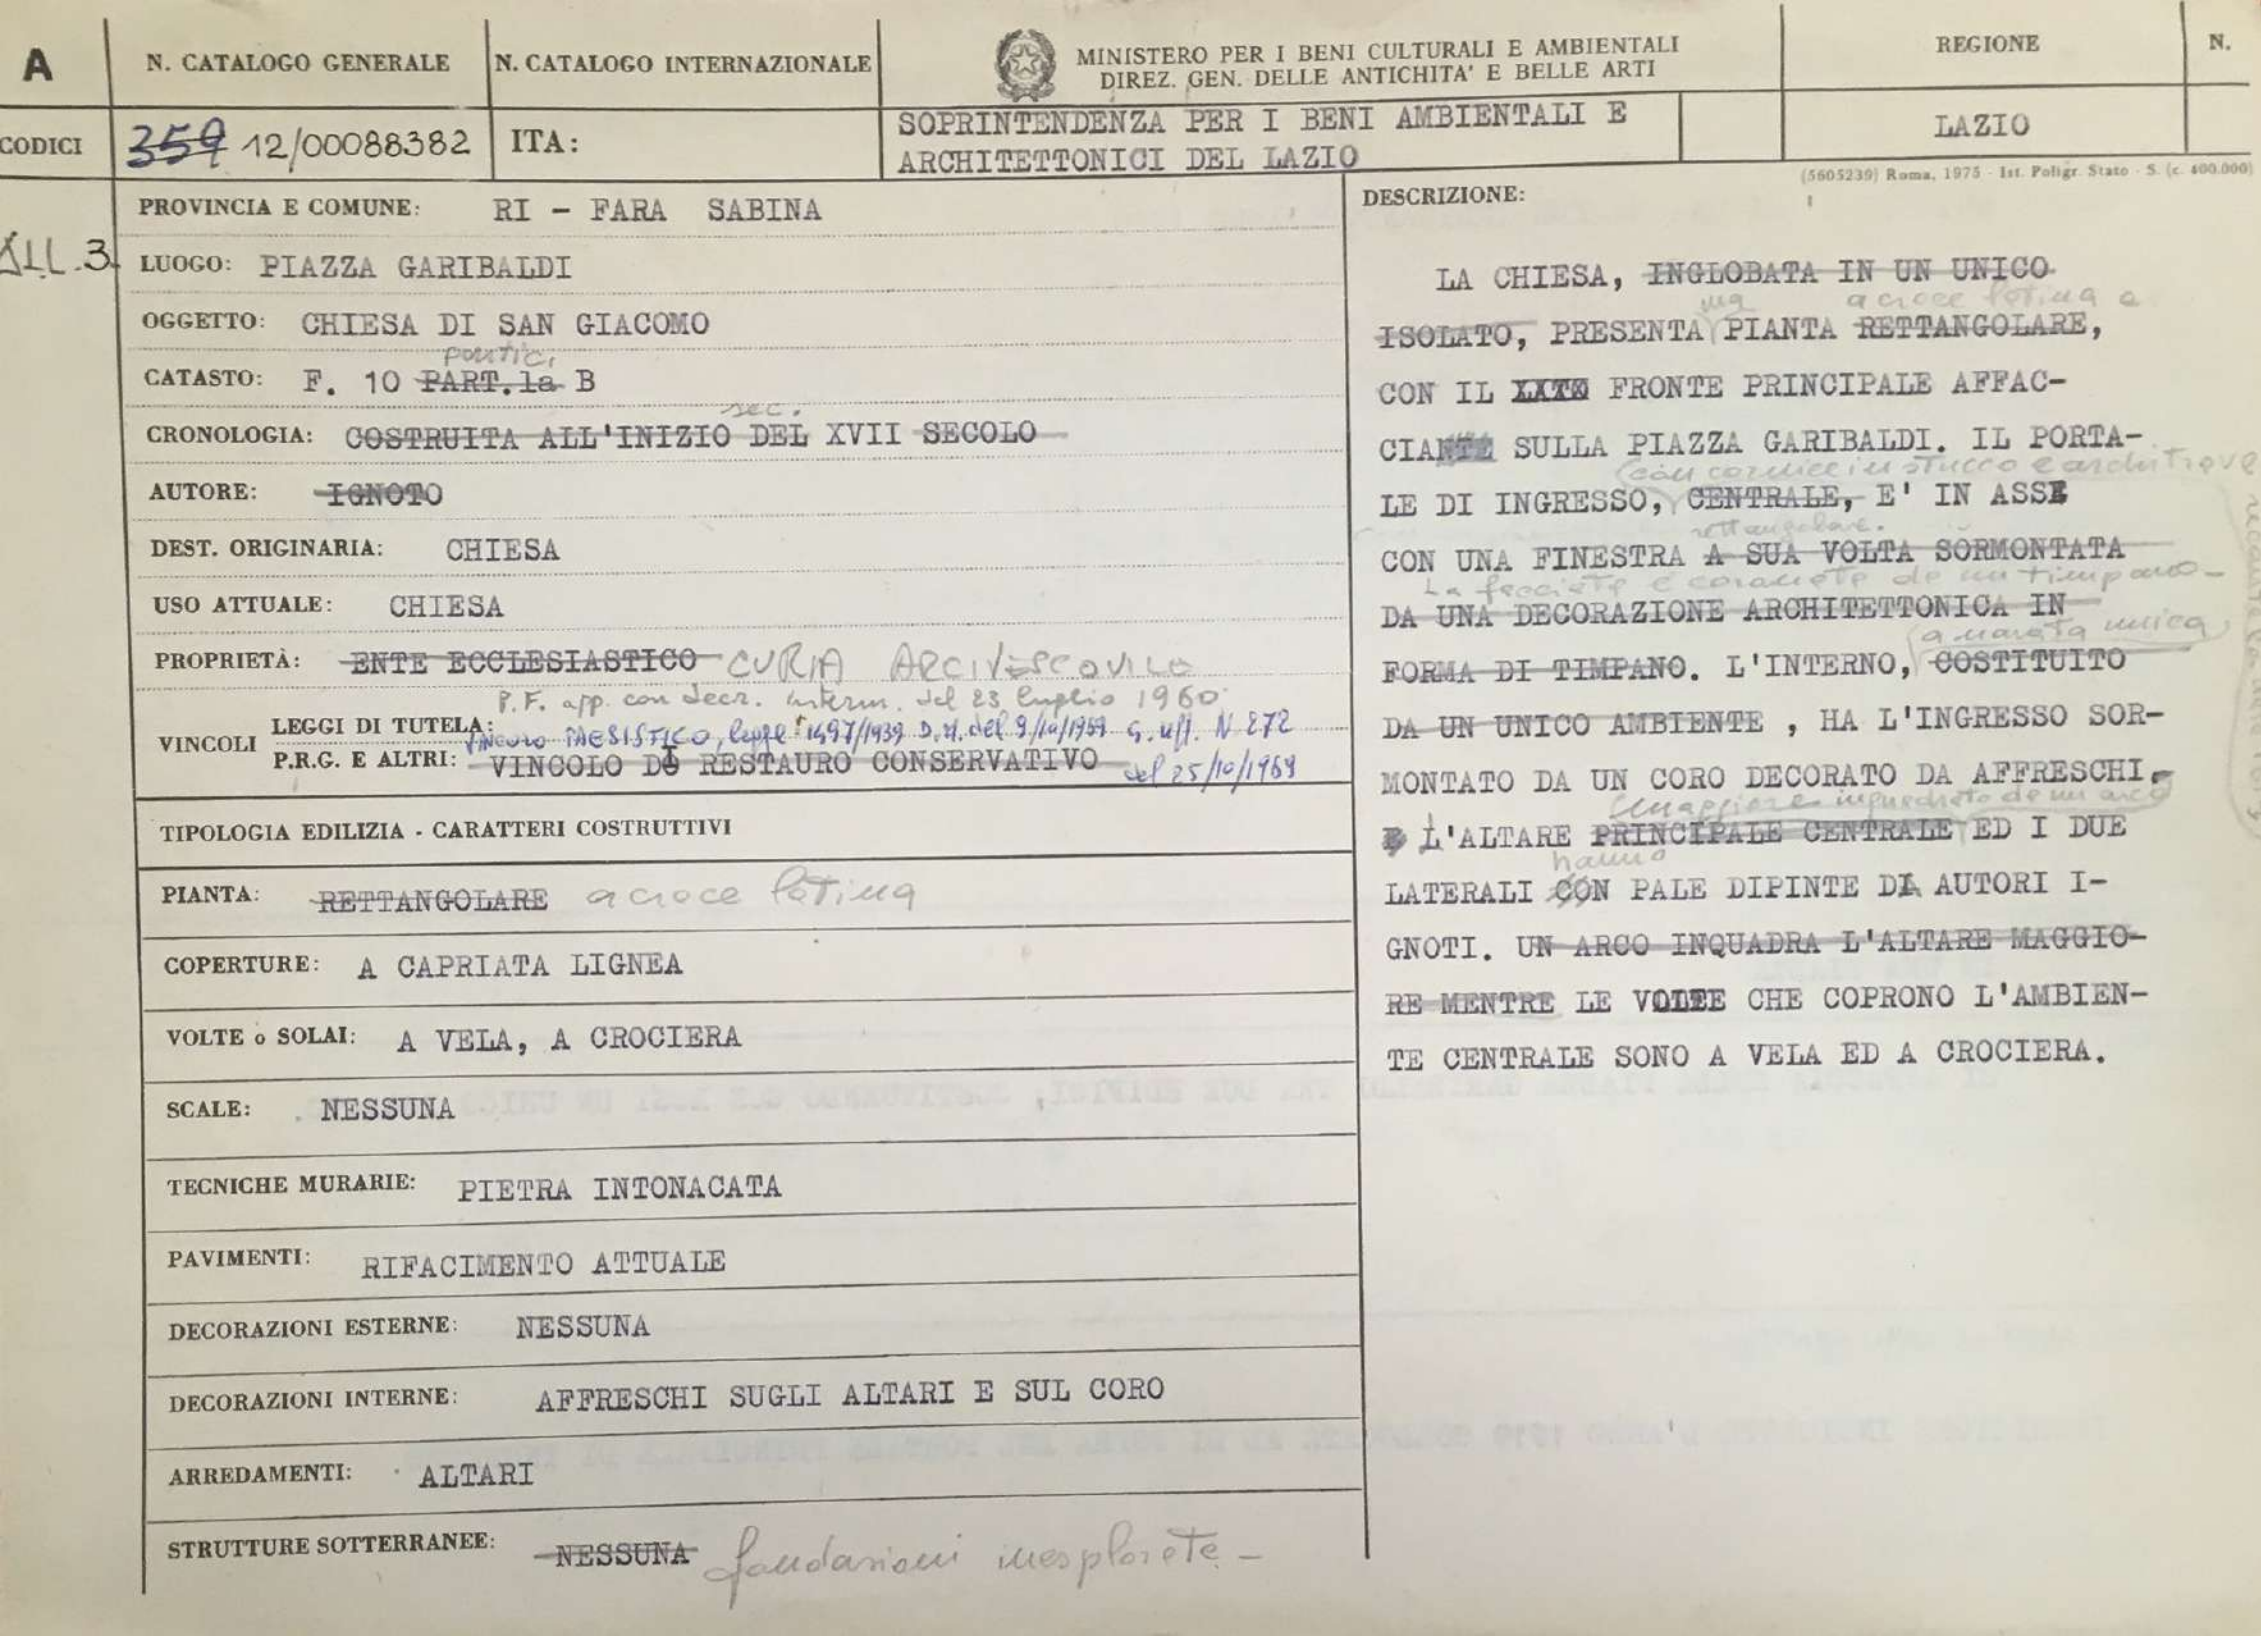 A
N. CATALOGO GENERALE
N. CATALOGO INTERNAZIONALE
MINISTERO PER I BENI CULTURALI E AMBIENTALI
DIREZ. GEN. DELLE ANTICHITA' E BELLE ARTI
REGIONE
N.
CODICI
359 12/00088382
ITA:
SOPRINTENDENZA PER I BENI AMBIENTALI E
ARCHITETTONICI DEL LAZIO
LAZIO
(5605239) Roma, 1975 - Ist. Poligr. Stato - S. (c. 400.000)
ALL.3
PROVINCIA E COMUNE: RI - FARA SABINA
LUOGO: PIAZZA GARIBALDI
OGGETTO: CHIESA DI SAN GIACOMO
partic.
CATASTO: F. 10 PART.la B
sec.
CRONOLOGIA: COSTRUITA ALL'INIZIO DEL XVII SECOLO
AUTORE: IGNOTO
DEST. ORIGINARIA: CHIESA
USO ATTUALE: CHIESA
PROPRIETÀ: ENTE ECCLESIASTICO CURIA ARCIVESCOVILE
P.F. app. con decr. interm. del 23 luglio 1960
VINCOLI
LEGGI DI TUTELA: VINCOLO PAESISTICO, legge 1497/1939 D.M. del 9/10/1959 G. uff. N 272
P.R.G. E ALTRI: VINCOLO DI RESTAURO CONSERVATIVO del 25/10/1969
TIPOLOGIA EDILIZIA - CARATTERI COSTRUTTIVI
PIANTA: RETTANGOLARE a croce latina
COPERTURE: A CAPRIATA LIGNEA
VOLTE o SOLAI: A VELA, A CROCIERA
SCALE: NESSUNA
TECNICHE MURARIE: PIETRA INTONACATA
PAVIMENTI: RIFACIMENTO ATTUALE
DECORAZIONI ESTERNE: NESSUNA
DECORAZIONI INTERNE: AFFRESCHI SUGLI ALTARI E SUL CORO
ARREDAMENTI: ALTARI
STRUTTURE SOTTERRANEE: NESSUNA fondazioni inesplorate -
DESCRIZIONE:
LA CHIESA, INGLOBATA IN UN UNICO
una a croce latina e
ISOLATO, PRESENTA PIANTA RETTANGOLARE,
CON IL LATO FRONTE PRINCIPALE AFFAC-
CIANTE SULLA PIAZZA GARIBALDI. IL PORTA-
con cornice in stucco e architrave
LE DI INGRESSO, CENTRALE, E' IN ASSE
rettangolare.
CON UNA FINESTRA A SUA VOLTA SORMONTATA
La facciata è coronata da un timpano -
DA UNA DECORAZIONE ARCHITETTONICA IN
a navata unica,
FORMA DI TIMPANO. L'INTERNO, COSTITUITO
DA UN UNICO AMBIENTE , HA L'INGRESSO SOR-
MONTATO DA UN CORO DECORATO DA AFFRESCHI.
maggiore inquadrato da un arco
E L'ALTARE PRINCIPALE CENTRALE ED I DUE
hanno
LATERALI CON PALE DIPINTE DA AUTORI I-
GNOTI. UN ARCO INQUADRA L'ALTARE MAGGIO-
RE MENTRE LE VOLTE CHE COPRONO L'AMBIEN-
TE CENTRALE SONO A VELA ED A CROCIERA.